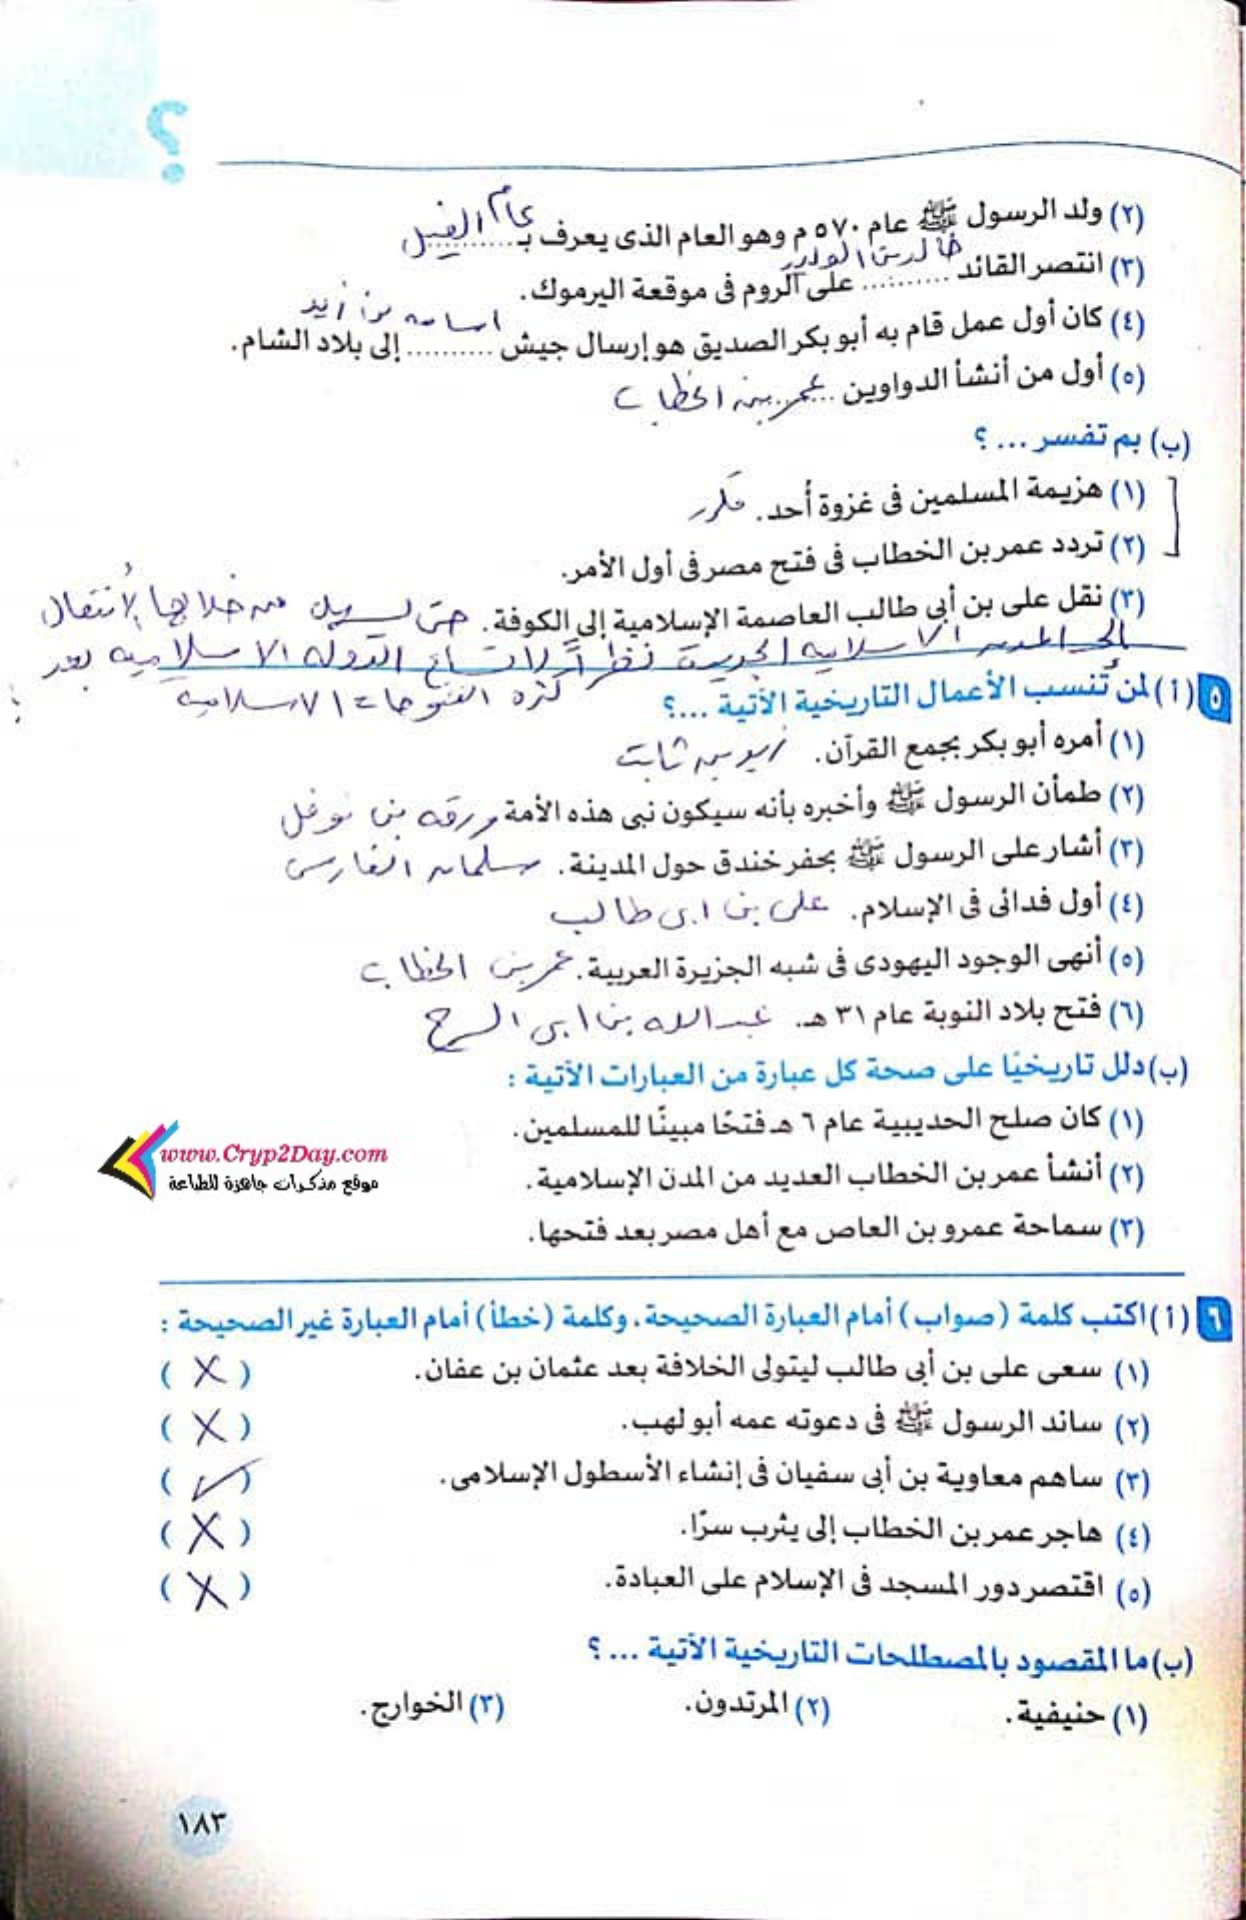 ؟
(٢) ولد الرسول ﷺ عام ٥٧٠ م وهو العام الذى يعرف بـ .......... عام الفيل
(٣) انتصر القائد .......... على الروم فى موقعة اليرموك. خالد بن الوليد
(٤) كان أول عمل قام به أبو بكر الصديق هو إرسال جيش .......... إلى بلاد الشام. اسامه بن زيد
(٥) أول من أنشأ الدواوين .......... عمر بن الخطاب
(ب) بم تفسر ... ؟
(١) هزيمة المسلمين فى غزوة أُحد. مكرر
(٢) تردد عمر بن الخطاب فى فتح مصر فى أول الأمر.
(٣) نقل على بن أبى طالب العاصمة الإسلامية إلى الكوفة. حتى يسهل من خلالها الانتقال
إلى المدن الاسلاميه الجديدة نظراً لاتساع الدولة الاسلاميه بعد
كثره الفتوحات الاسلاميه
٥ (أ) لمن تُنسب الأعمال التاريخية الآتية ...؟
(١) أمره أبو بكر بجمع القرآن. زيد بن ثابت
(٢) طمأن الرسول ﷺ وأخبره بأنه سيكون نبى هذه الأمة ورقه بن نوفل
(٣) أشار على الرسول ﷺ بحفر خندق حول المدينة. سلمان الفارسى
(٤) أول فدائى فى الإسلام. على بن ابى طالب
(٥) أنهى الوجود اليهودى فى شبه الجزيرة العربية. عمر بن الخطاب
(٦) فتح بلاد النوبة عام ٣١ هـ. عبد الله بن ابى السرح
(ب) دلل تاريخيًا على صحة كل عبارة من العبارات الآتية :
(١) كان صلح الحديبية عام ٦ هـ فتحًا مبينًا للمسلمين.
(٢) أنشأ عمر بن الخطاب العديد من المدن الإسلامية.
(٣) سماحة عمرو بن العاص مع أهل مصر بعد فتحها.
www.Cryp2Day.com
موقع مذكرات جاهزة للطباعة
٦ (أ) اكتب كلمة (صواب) أمام العبارة الصحيحة، وكلمة (خطأ) أمام العبارة غير الصحيحة :
(١) سعى على بن أبى طالب ليتولى الخلافة بعد عثمان بن عفان. ( X )
(٢) ساند الرسول ﷺ فى دعوته عمه أبو لهب. ( X )
(٣) ساهم معاوية بن أبى سفيان فى إنشاء الأسطول الإسلامى. ( ✓ )
(٤) هاجر عمر بن الخطاب إلى يثرب سرًا. ( X )
(٥) اقتصر دور المسجد فى الإسلام على العبادة. ( X )
(ب) ما المقصود بالمصطلحات التاريخية الآتية ... ؟
(١) حنيفية. (٢) المرتدون. (٣) الخوارج.
١٨٣